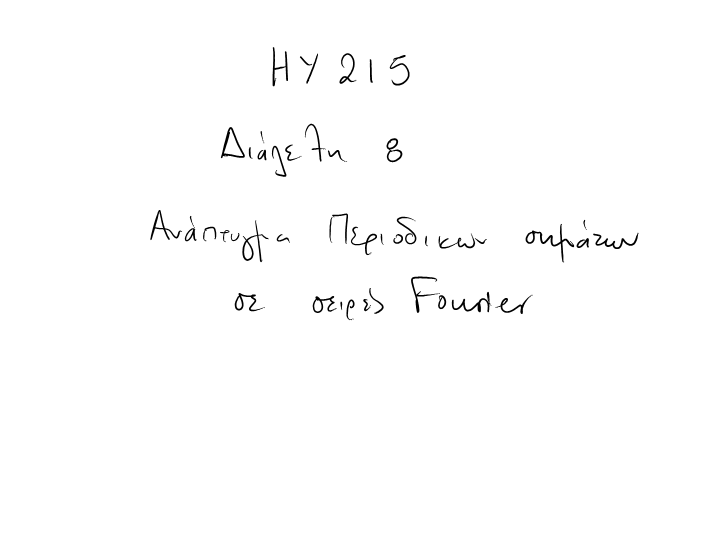 ΗΥ 215
Διάλεξη 8
Ανάπτυγμα Περιοδικων σημάτων
σε σειρές Fourier